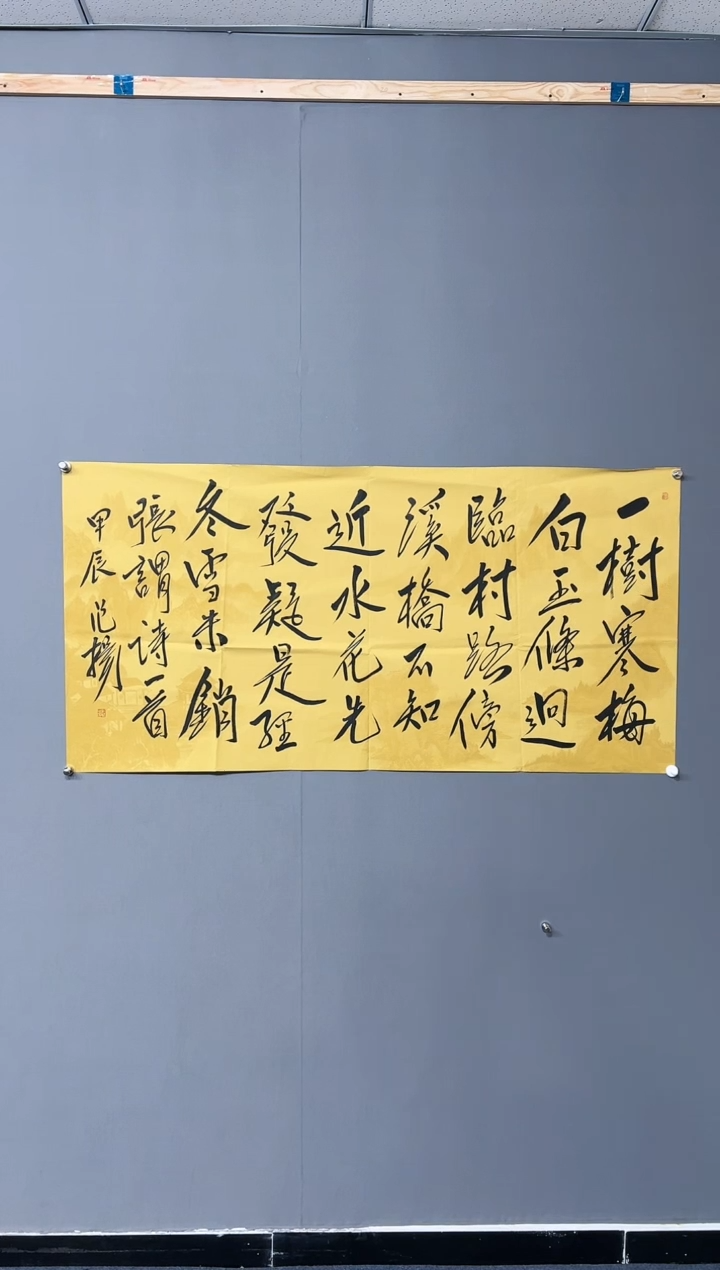 一樹寒梅
白玉條迥
臨村路傍
溪橋不知
近水花先
發疑是經
冬雪未銷
張謂詩一首
甲辰 范揚